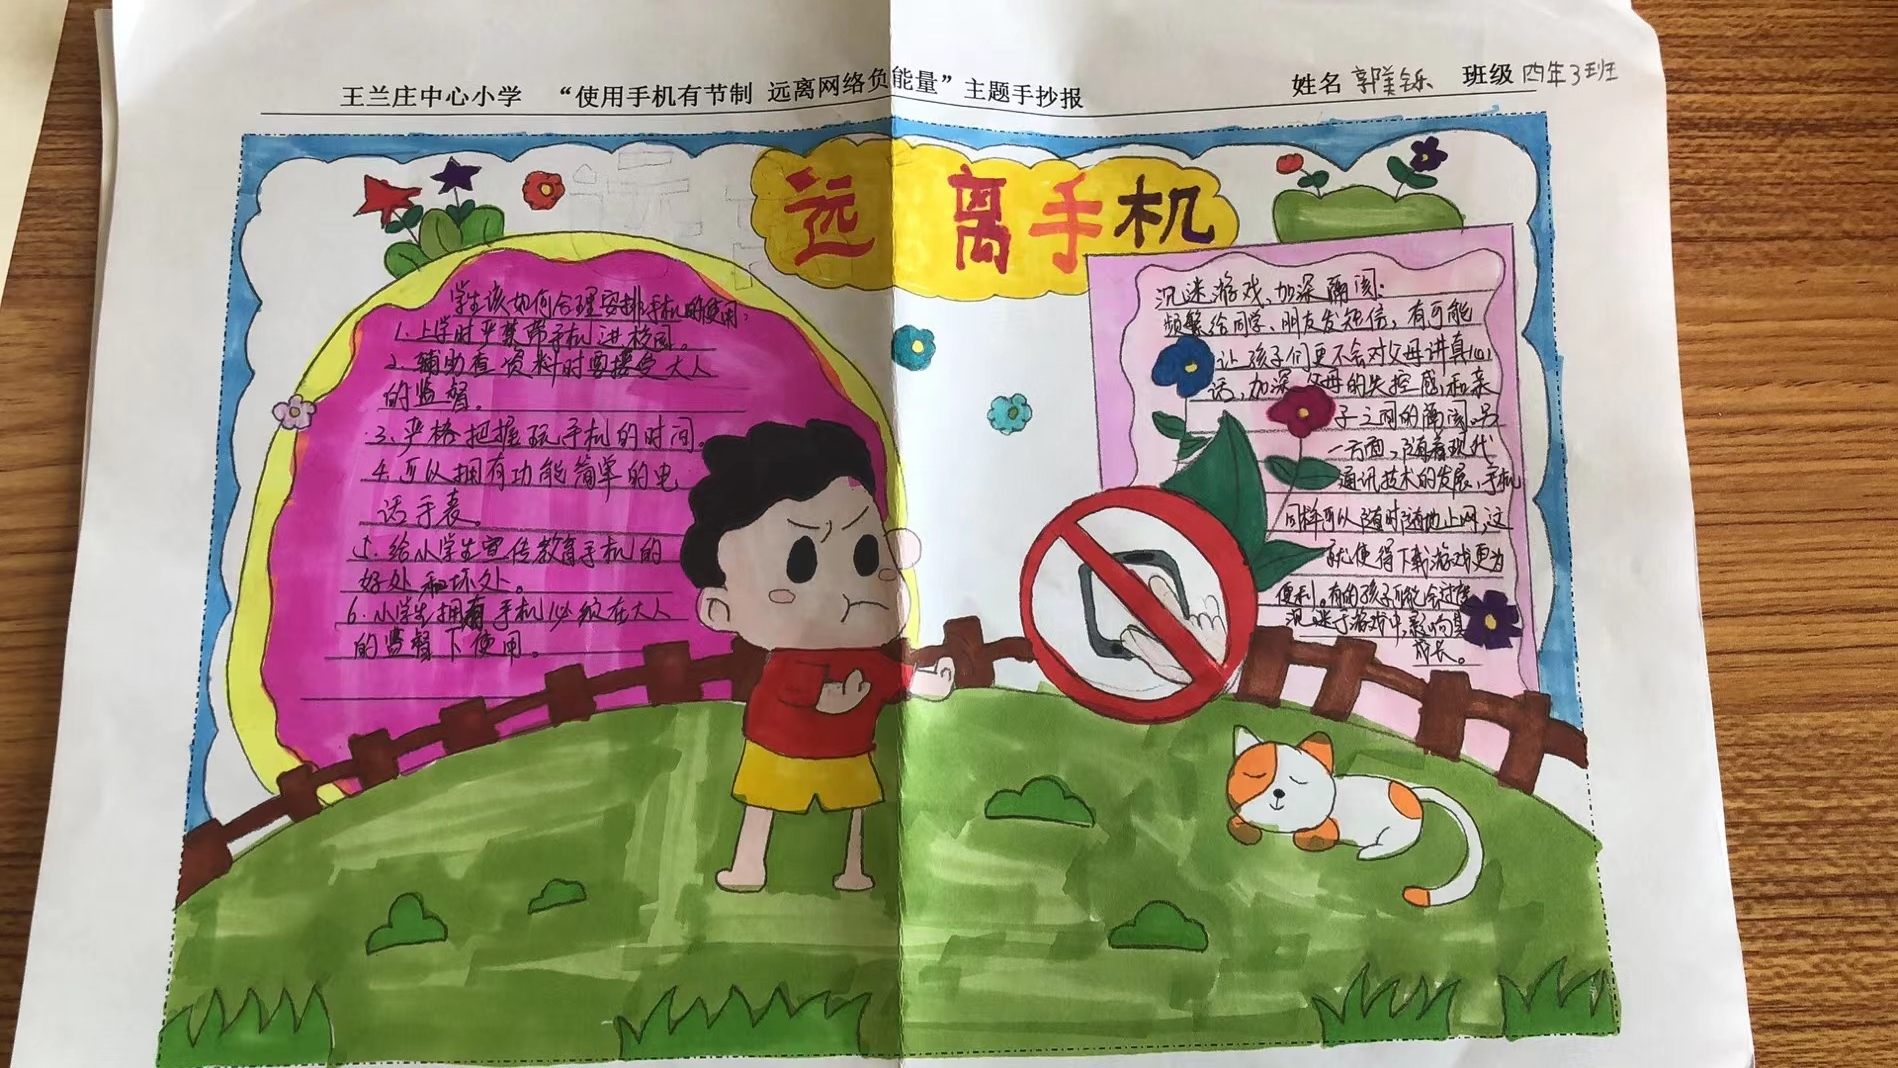 王兰庄中心小学 “使用手机有节制 远离网络负能量”主题手抄报
姓名 郭美铄 班级 四年3班
远离手机
学生该如何合理安排手机的使用：
1.上学时严禁带手机进校园。
2.辅助查资料时要接受大人
的监督。
3、严格把握玩手机的时间。
4.可以拥有功能简单的电
话手表。
5.给小学生宣传教育手机的
好处和坏处。
6.小学生拥有手机必须在大人
的监督下使用。
沉迷游戏、加深隔阂：
频繁给同学、朋友发短信，有可能
让孩子们更不会对父母讲真心
话，加深父母的失控感和亲
子之间的隔阂。另
一方面，随着现代
通讯技术的发展，手机
同样可以随时随地上网，这
就使得下载游戏更为
便利。有的孩子可能会过度
沉迷于游戏中，影响其
成长。